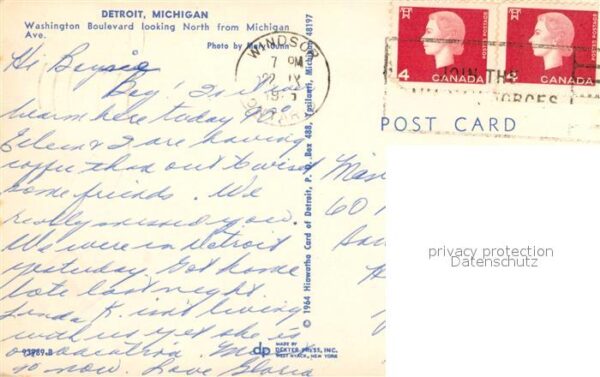 DETROIT, MICHIGAN
Washington Boulevard looking North from Michigan
Ave.
Photo by Mary Dunn
Hi
Boy! is it
warm here today 90°.
Eileen & I are having
coffee than out to visit
some friends. We
really missed you.
We were in Detroit
yesterday, got home
late last night
Linda K. isn't living
with us yet she is
on vacation. Must
go now. Love Gloria
93989-B
© 1964 Hiawatha Card of Detroit, P. O. Box 488, Ypsilanti, Michigan 48197
dp MADE BY
DEXTER PRESS, INC.
WEST NYACK, NEW YORK
WINDSOR
7 PM
ONTARIO
4 CANADA
POSTES POSTAGE
CANADA
POSTES POSTAGE
JOIN THE
FORCES
POST CARD
60
privacy protection
Datenschutz